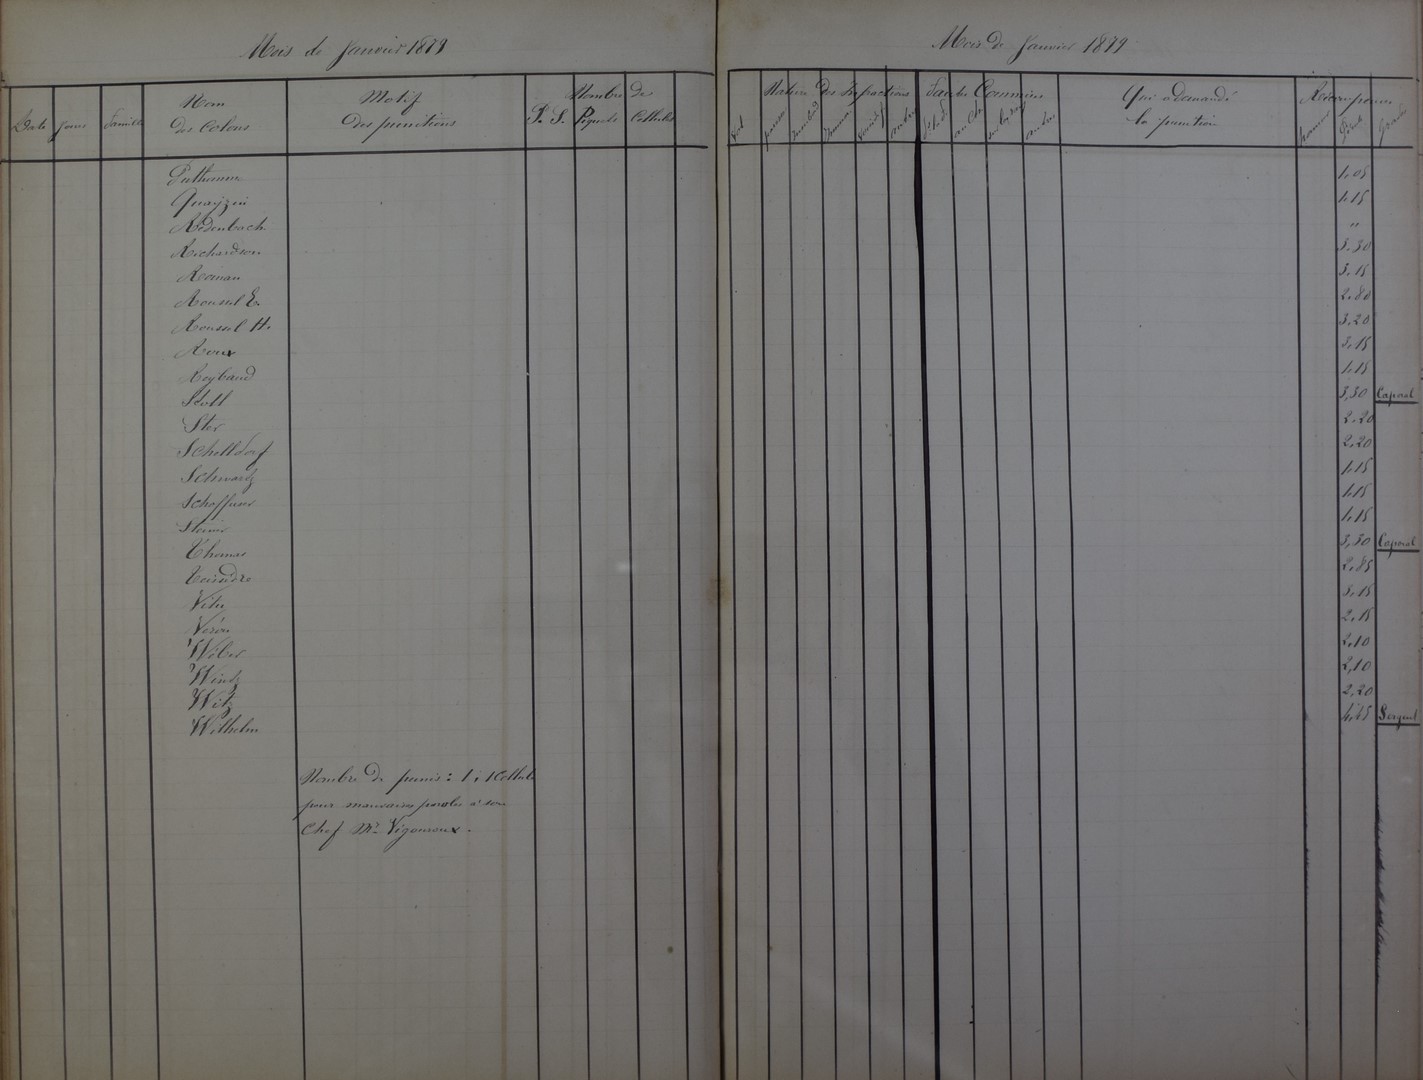 Mois de Janvier 1879
Date Jours Famille Nom des Colons Motif des punitions Nombre de P. S. Piquets Cellules
Puthomme
Quayzin
Redenbach
Richardson
Roman
Roussel E.
Roussel H.
Roux
Reybaud
Scoll
Ster
Schelldorf
Schwartz
Schoffner
Steinir
Thomas
Teindre
Vitu
Véron
Wéber
Wintz
Witz
Wilhelm
Nombre de punis : 1 : 1 Cellule
pour mauvaises paroles à son
Chef Mr Vigouroux.
Mois de Janvier 1879
Nature des Infractions Faute Commise Qui a demandé la punition Récompenses
vol paresse autre autre Grade
1,05
1,15
"
3,30
3,15
2,80
3,20
3,15
1,15
3,30 Caporal
2,20
2,20
1,15
1,15
1,15
3,30 Caporal
2,85
3,15
2,15
2,10
2,10
2,20
4,65 Sergent